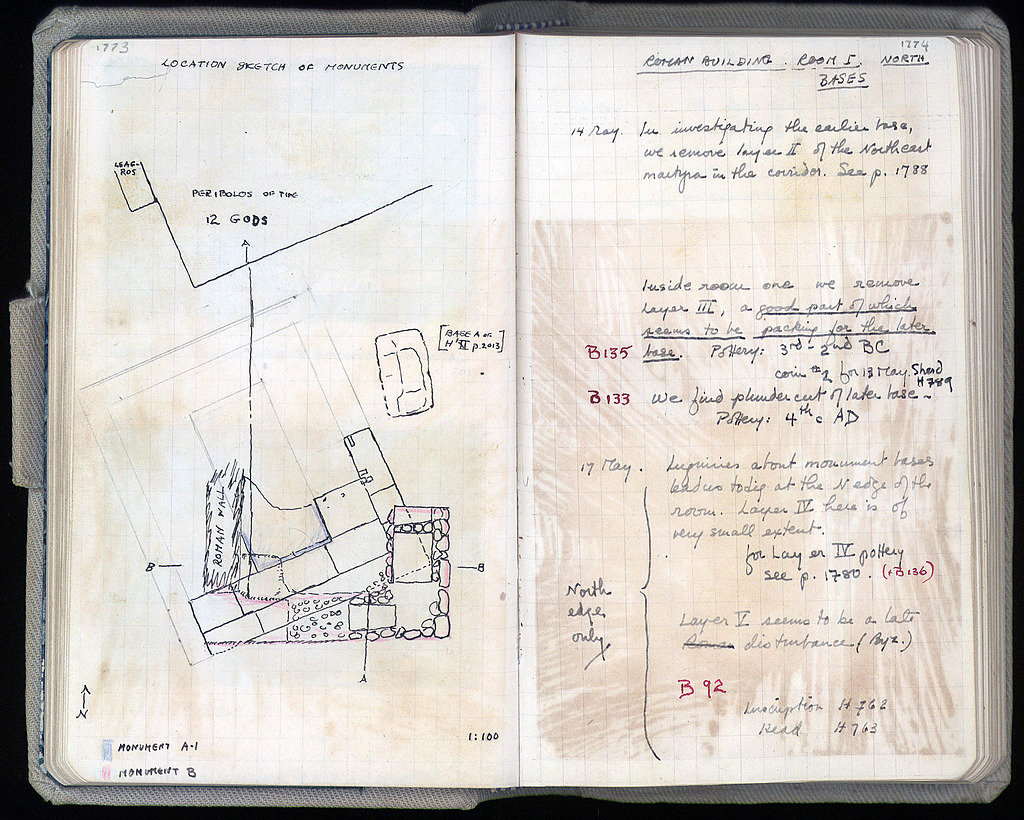 1773
LOCATION SKETCH OF MONUMENTS
LEAG-
ROS
PERIBOLOS OF THE
12 GODS
A
[BASE A of
H'XI p.2013]
ROMAN WALL
B
B
A
N
1:100
MONUMENT A-1
MONUMENT B
1774
ROMAN BUILDING. ROOM I. NORTH
BASES
14 May. In investigating the earlier base,
we remove layer II of the Northeast
martyra in the corridor. See p. 1788
Inside room one we remove
Layer III, a good part of which
seems to be packing for the later
B135 base. Pottery: 3rd-2nd BC
coin #2 for 13 May. Sherd
H789
B133 We find plunder cut of later base-
Pottery: 4th c AD
17 May. Inquiries about monument bases
lead us to dig at the N edge of the
room. Layer IV here is of
very small extent.
for Layer IV pottery
see p. 1780. (+B136)
North
edge
only
Layer V seems to be a late
Roman disturbance (Byz.)
B 92
Inscription H 762
Head H 763